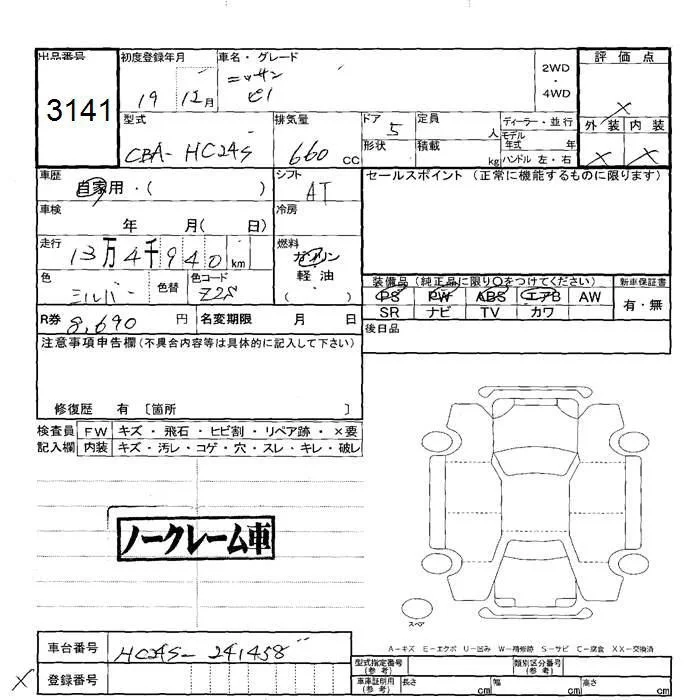 出品番号 初度登録年月 車名・グレード 2WD 評価点
3141 19 12月 ニッサン ピノ ・4WD ×
型式 排気量 ドア 定員 ディーラー・並行 外装 内装
CBA-HC24S 660 CC 5 人 モデル年式 年 × ×
形状 積載 kg ハンドル 左・右
車歴 自家用・( ) シフト AT セールスポイント (正常に機能するものに限ります)
車検 年 月( 日) 冷房
走行 13万4千940km 燃料 ガソリン
色 シルバー 色替 色コード Z2S 軽油 ( )
装備品(純正品に限り○をつけてください) 新車保証書
PS PW ABS エアB AW 有・無
SR ナビ TV カワ
R券 8,690 円 名変期限 月 日 後日品
注意事項申告欄(不具合内容等は具体的に記入して下さい)
修復歴 有 〔箇所 〕
検査員 FW キズ・飛石・ヒビ割・リペア跡・×要
記入欄 内装 キズ・汚レ・コゲ・穴・スレ・キレ・破レ
ノークレーム車
スペア
A-キズ E-エクボ U-凹み W-補修跡 S-サビ C-腐食 XX-交換済
車台番号 HC24S-241458
× 登録番号
型式指定番号(参考) 類別区分番号(参考)
車庫証明用(参考) 長さ cm 幅 cm 高さ cm